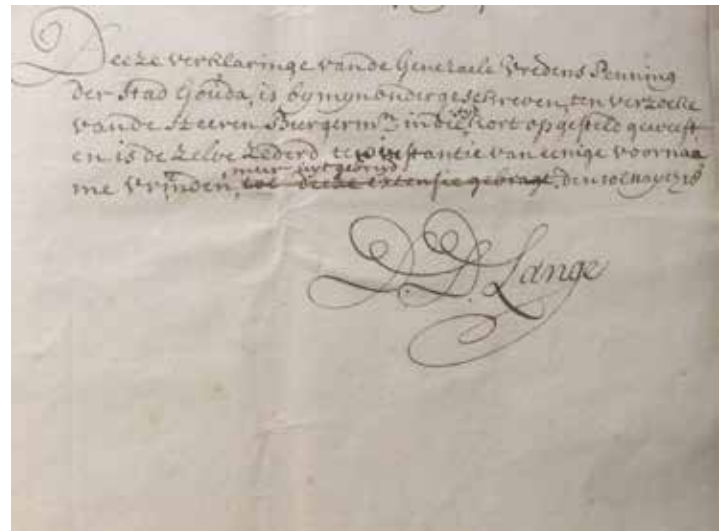 Deeze verklaringe vande Generaele Vredens Penning
der Stad Gouda, is by myn ondergeschreven, ten verzoeke
vande Heeren Burgerm:rs in die kort opgesteld geweest
en is de zelve zederd te instantie van eenige voornaa
meer uytgebreid
me vrinden, tot deeze extensie gebragt, den
D. D. Lange